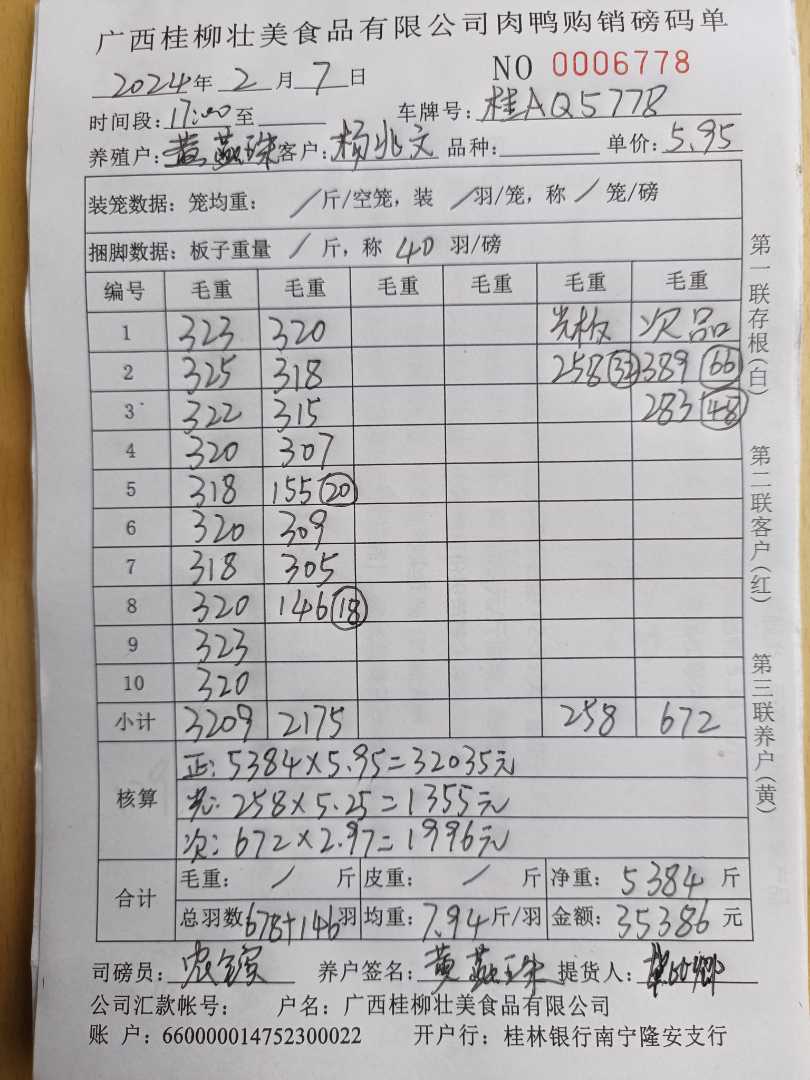 广西桂柳壮美食品有限公司肉鸭购销磅码单
2024年 2 月 7 日 NO 0006778
时间段:17:00至 车牌号:桂AQ5778
养殖户:黄燕珠 客户:杨兆文 品种: 单价:5.95
装笼数据:笼均重: / 斤/空笼,装 / 羽/笼,称 / 笼/磅
捆脚数据:板子重量 / 斤,称 40 羽/磅
编号 毛重 毛重 毛重 毛重 毛重 毛重
1 323 320 光板 次品
2 325 318 258 389 66
3 322 315 283 48
4 320 307
5 318 155 20
6 320 309
7 318 305
8 320 146 18
9 323
10 320
小计 3209 2175 258 672
核算
正:5384×5.95=32035元
光:258×5.25=1355元
次:672×2.97=1996元
合计
毛重: / 斤 皮重: / 斤 净重:5384 斤
总羽数678+146羽 均重:7.94斤/羽 金额:35386 元
司磅员: 养户签名:黄燕珠 提货人:
公司汇款帐号: 户名:广西桂柳壮美食品有限公司
账 户:660000014752300022 开户行:桂林银行南宁隆安支行
第一联存根(白)
第二联客户(红)
第三联养户(黄)